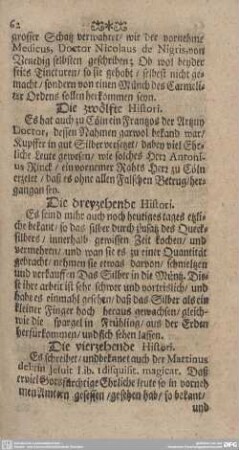 62
grosser Schatz verwahret/ wie der vornehme
Medicus, Doctor Nicolaus de Nigris, von
Venedig selbsten geschriben; Ob wol beyder
seits Tincturen/ so sie gehabt/ selbst nicht ge-
macht/ sondern von einen Münch des Carmeli-
ter Ordens sollen herkommen seyn.
Die zwölffte Histori.
Es hat auch zu Cöln ein Frantzos der Artzney
Doctor, dessen Nahmen garwol bekand war/
Kupffer in gut Silber versetzet/ dabey viel Ehr-
liche Leute gewesen/ wie solches Herr Antoni-
us Rinck/ ein vornemer Rahts Herr zu Cöln
erzelet/ daß es ohne allen Falschen Betrug/ her-
gangen sey.
Die dreyzehende Histori.
Es seind mihr auch noch heutiges tages etzli-
che bekant/ so das silber durch Zusatz des Queck-
silbers/ innerhalb gewissen Zeit kochen/ und
vermehren/ und wan sie es zu einer Quantität
gebracht/ nehmen sie etwas darvon/ schmeltzen
und verkauffen Das Silber in die Müntz. Die-
se ihre arbeit ist sehr schwer und vortreflich/ und
habe es einmahl gesehen/ daß das Silber als ein
kleiner Finger hoch heraus gewachsen/ gleich-
wie die spargel in Frühling/ aus der Erden
herfürkommen/ und sich sehen lassen.
Die vierzehende Histori.
Es schreibet/ und bekennet auch der Martinus
delrio Jesuit Lib. 1 disquisit. magicar. Daß
er viel Gottsfürchtige Ehrliche leute so in vorneh-
men Ämtern gesessen/ gesehen hab/ so bekant/
und